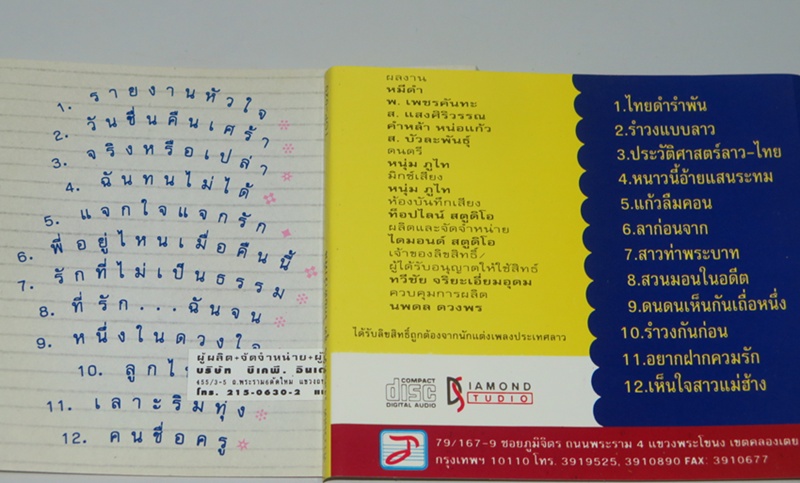 1. รายงานหัวใจ
2. วันชื่นคืนเศร้า
3. จริงหรือเปล่า
4. ฉันทนไม่ได้
5. แจกใจแจกรัก
6. พี่อยู่ไหนเมื่อคืนนี้
7. รักที่ไม่เป็นธรรม
8. ที่รัก...ฉันจน
9. หนึ่งในดวงใจ
10. ลูก
11. เลาะริมทุ่ง
12. คนชื่อครู
ผู้ผลิต+จัดจำหน่าย+ผู้
บริษัท บีเคพี. อินเต
455/3-5 ถ.พระราม6ตัดใหม่
โทร. 215-0630-2
ผลงาน
หมีดำ
พ. เพชรคันทะ
ส. แสงศิริวรรณ
คำหล้า หน่อแก้ว
ส. บัวละพันธุ์
ดนตรี
หนุ่ม ภูไท
มิกซ์เสียง
หนุ่ม ภูไท
ห้องบันทึกเสียง
ท็อปไลน์ สตูดิโอ
ผลิตและจัดจำหน่าย
ไดมอนด์ สตูดิโอ
เจ้าของลิขสิทธิ์/
ผู้ได้รับอนุญาตให้ใช้สิทธิ์
ทวีชัย จริยะเอี่ยมอุดม
ควบคุมการผลิต
นพดล ดวงพร
ได้รับลิขสิทธิ์ถูกต้องจากนักแต่งเพลงประเทศลาว
COMPACT
disc
DIGITAL AUDIO
DIAMOND
STUDIO
1.ไทยดำรำพัน
2.รำวงแบบลาว
3.ประวัติศาสตร์ลาว-ไทย
4.หนาวนี้อ้ายแสนระทม
5.แก้วลืมคอน
6.ลาก่อนจาก
7.สาวท่าพระบาท
8.สวนมอนในอดีต
9.ดนดนเห็นกันเถื่อหนึ่ง
10.รำวงกันก่อน
11.อยากฝากความรัก
12.เห็นใจสาวแม่ฮ้าง
79/167-9 ซอยภูมิจิตร ถนนพระราม 4 แขวงพระโขนง เขตคลองเตย
กรุงเทพฯ 10110 โทร. 3919525, 3910890 FAX: 3910677